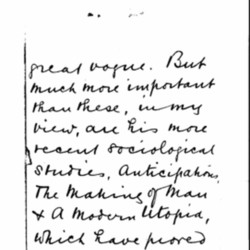 great vogue. But
much more important
than these, in my
view, are his more
recent sociological
studies, Anticipations,
The Making of Man
& A Modern Utopia,
which have proved